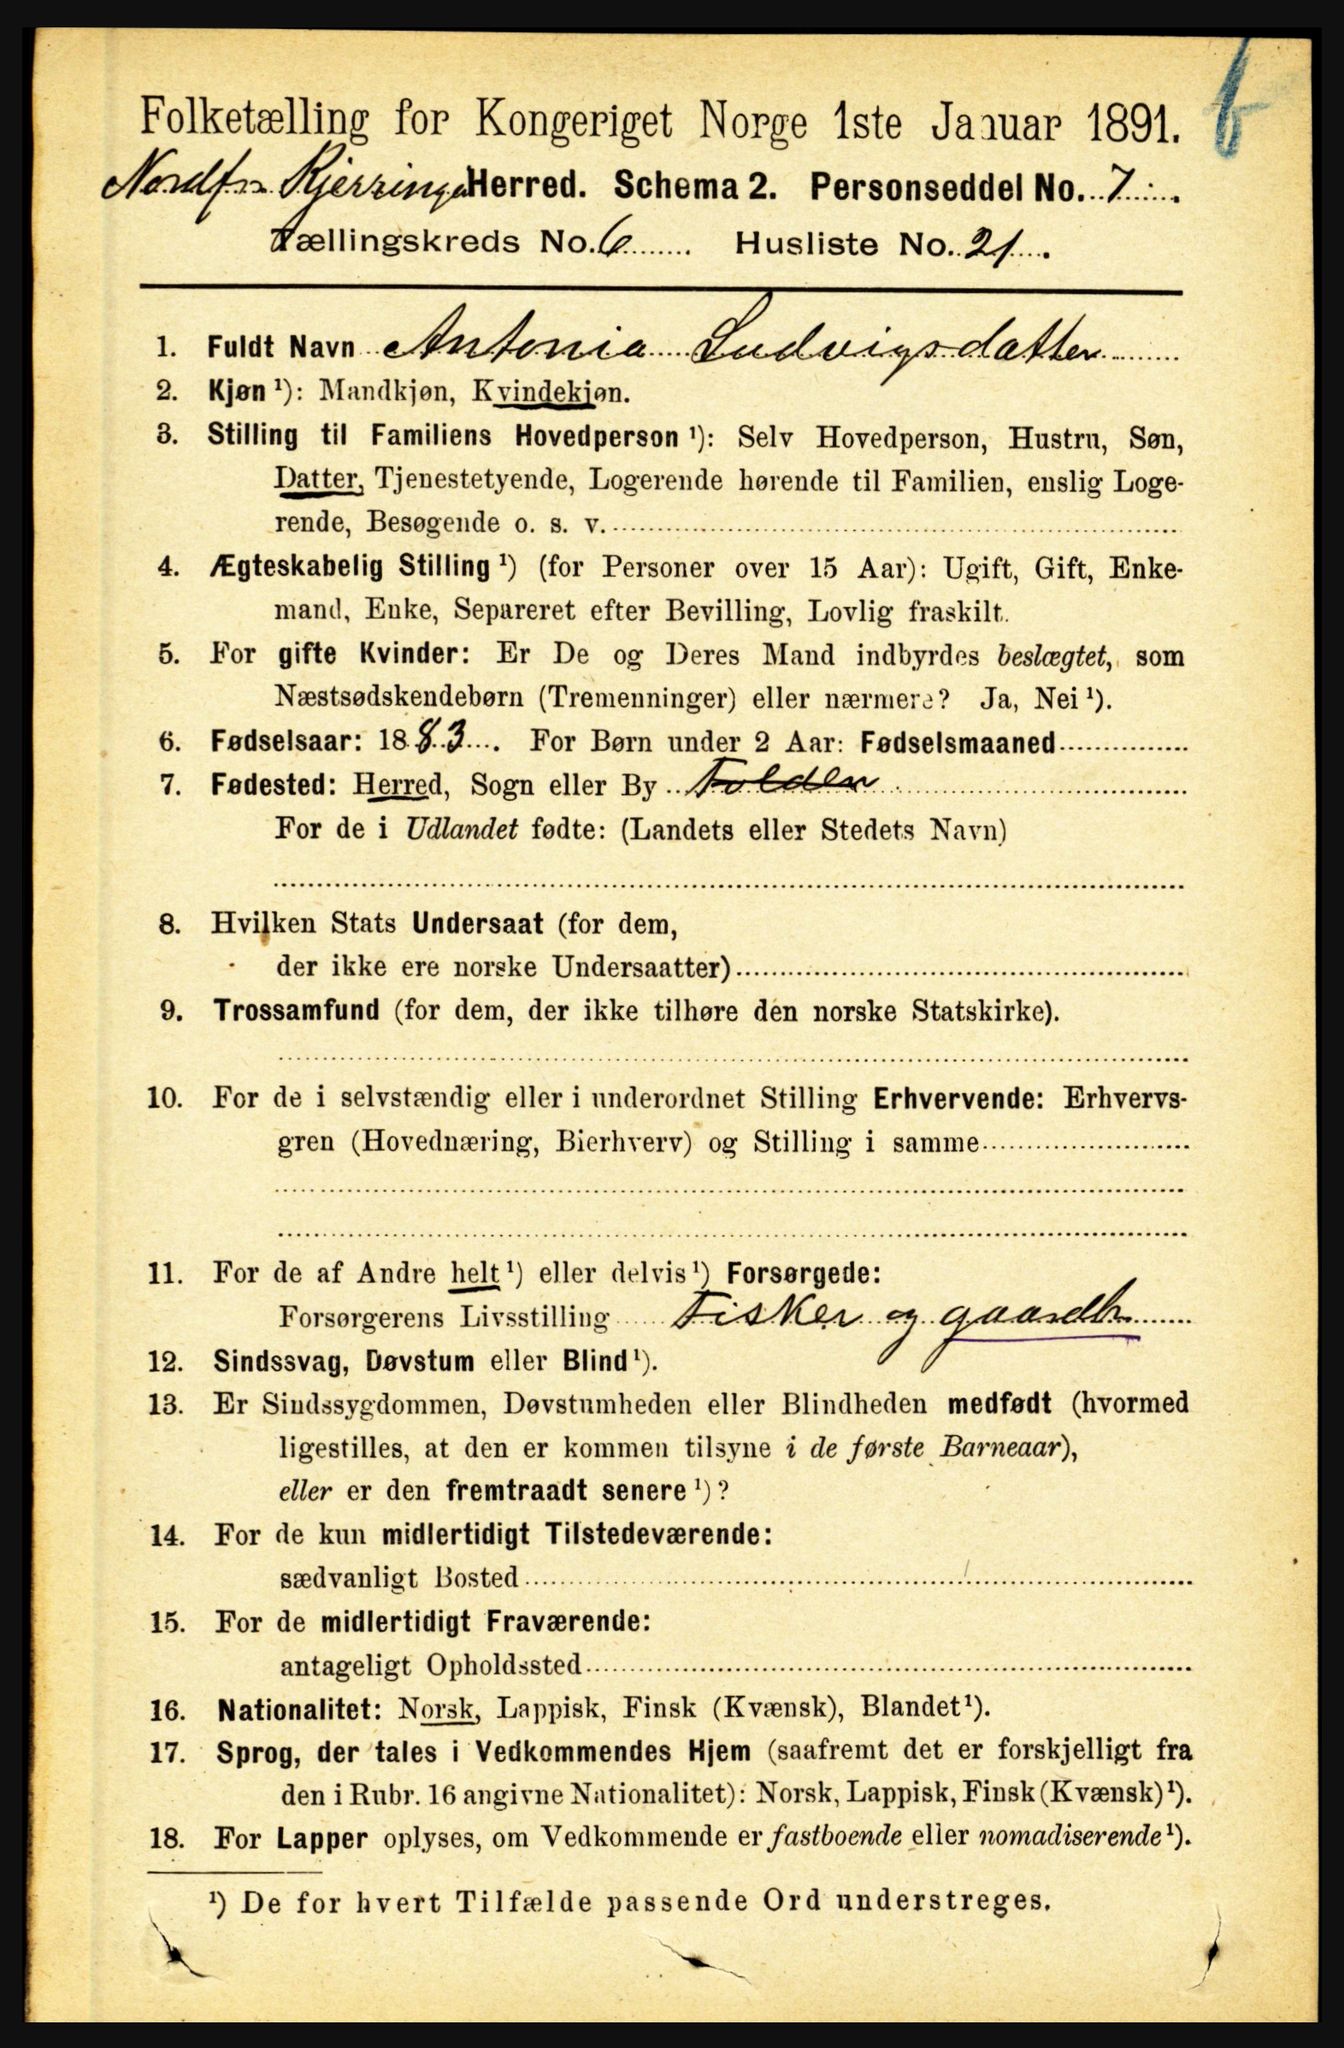 b
Folketælling for Kongeriget Norge 1ste Januar 1891.
Nordf.. Kjerringø Herred. Schema 2. Personseddel No. 7
Tællingskreds No. 6 Husliste No. 21.
1. Fuldt Navn Antonia Ludvigsdatter
2. Kjøn ¹): Mandkjøn, Kvindekjøn.
3. Stilling til Familiens Hovedperson ¹): Selv Hovedperson, Hustru, Søn,
Datter, Tjenestetyende, Logerende hørende til Familien, enslig Loge-
rende, Besøgende o. s. v.
4. Ægteskabelig Stilling ¹) (for Personer over 15 Aar): Ugift, Gift, Enke-
mand, Enke, Separeret efter Bevilling, Lovlig fraskilt.
5. For gifte Kvinder: Er De og Deres Mand indbyrdes beslægtet, som
Næstsødskendebørn (Tremenninger) eller nærmere? Ja, Nei ¹).
6. Fødselsaar: 1883. For Børn under 2 Aar: Fødselsmaaned
7. Fødested: Herred, Sogn eller By Folden
For de i Udlandet fødte: (Landets eller Stedets Navn)
8. Hvilken Stats Undersaat (for dem,
der ikke ere norske Undersaatter)
9. Trossamfund (for dem, der ikke tilhøre den norske Statskirke).
10. For de i selvstændig eller i underordnet Stilling Erhvervende: Erhvervs-
gren (Hovednæring, Bierhverv) og Stilling i samme
11. For de af Andre helt ¹) eller delvis ¹) Forsørgede:
Forsørgerens Livsstilling Fisker og gaardbr.
12. Sindssvag, Døvstum eller Blind ¹).
13. Er Sindssygdommen, Døvstumheden eller Blindheden medfødt (hvormed
ligestilles, at den er kommen tilsyne i de første Barneaar),
eller er den fremtraadt senere ¹)?
14. For de kun midlertidigt Tilstedeværende:
sædvanligt Bosted
15. For de midlertidigt Fraværende:
antageligt Opholdssted
16. Nationalitet: Norsk, Lappisk, Finsk (Kvænsk), Blandet ¹).
17. Sprog, der tales i Vedkommendes Hjem (saafremt det er forskjelligt fra
den i Rubr. 16 angivne Nationalitet): Norsk, Lappisk, Finsk (Kvænsk) ¹).
18. For Lapper oplyses, om Vedkommende er fastboende eller nomadiserende ¹).
¹) De for hvert Tilfælde passende Ord understreges.